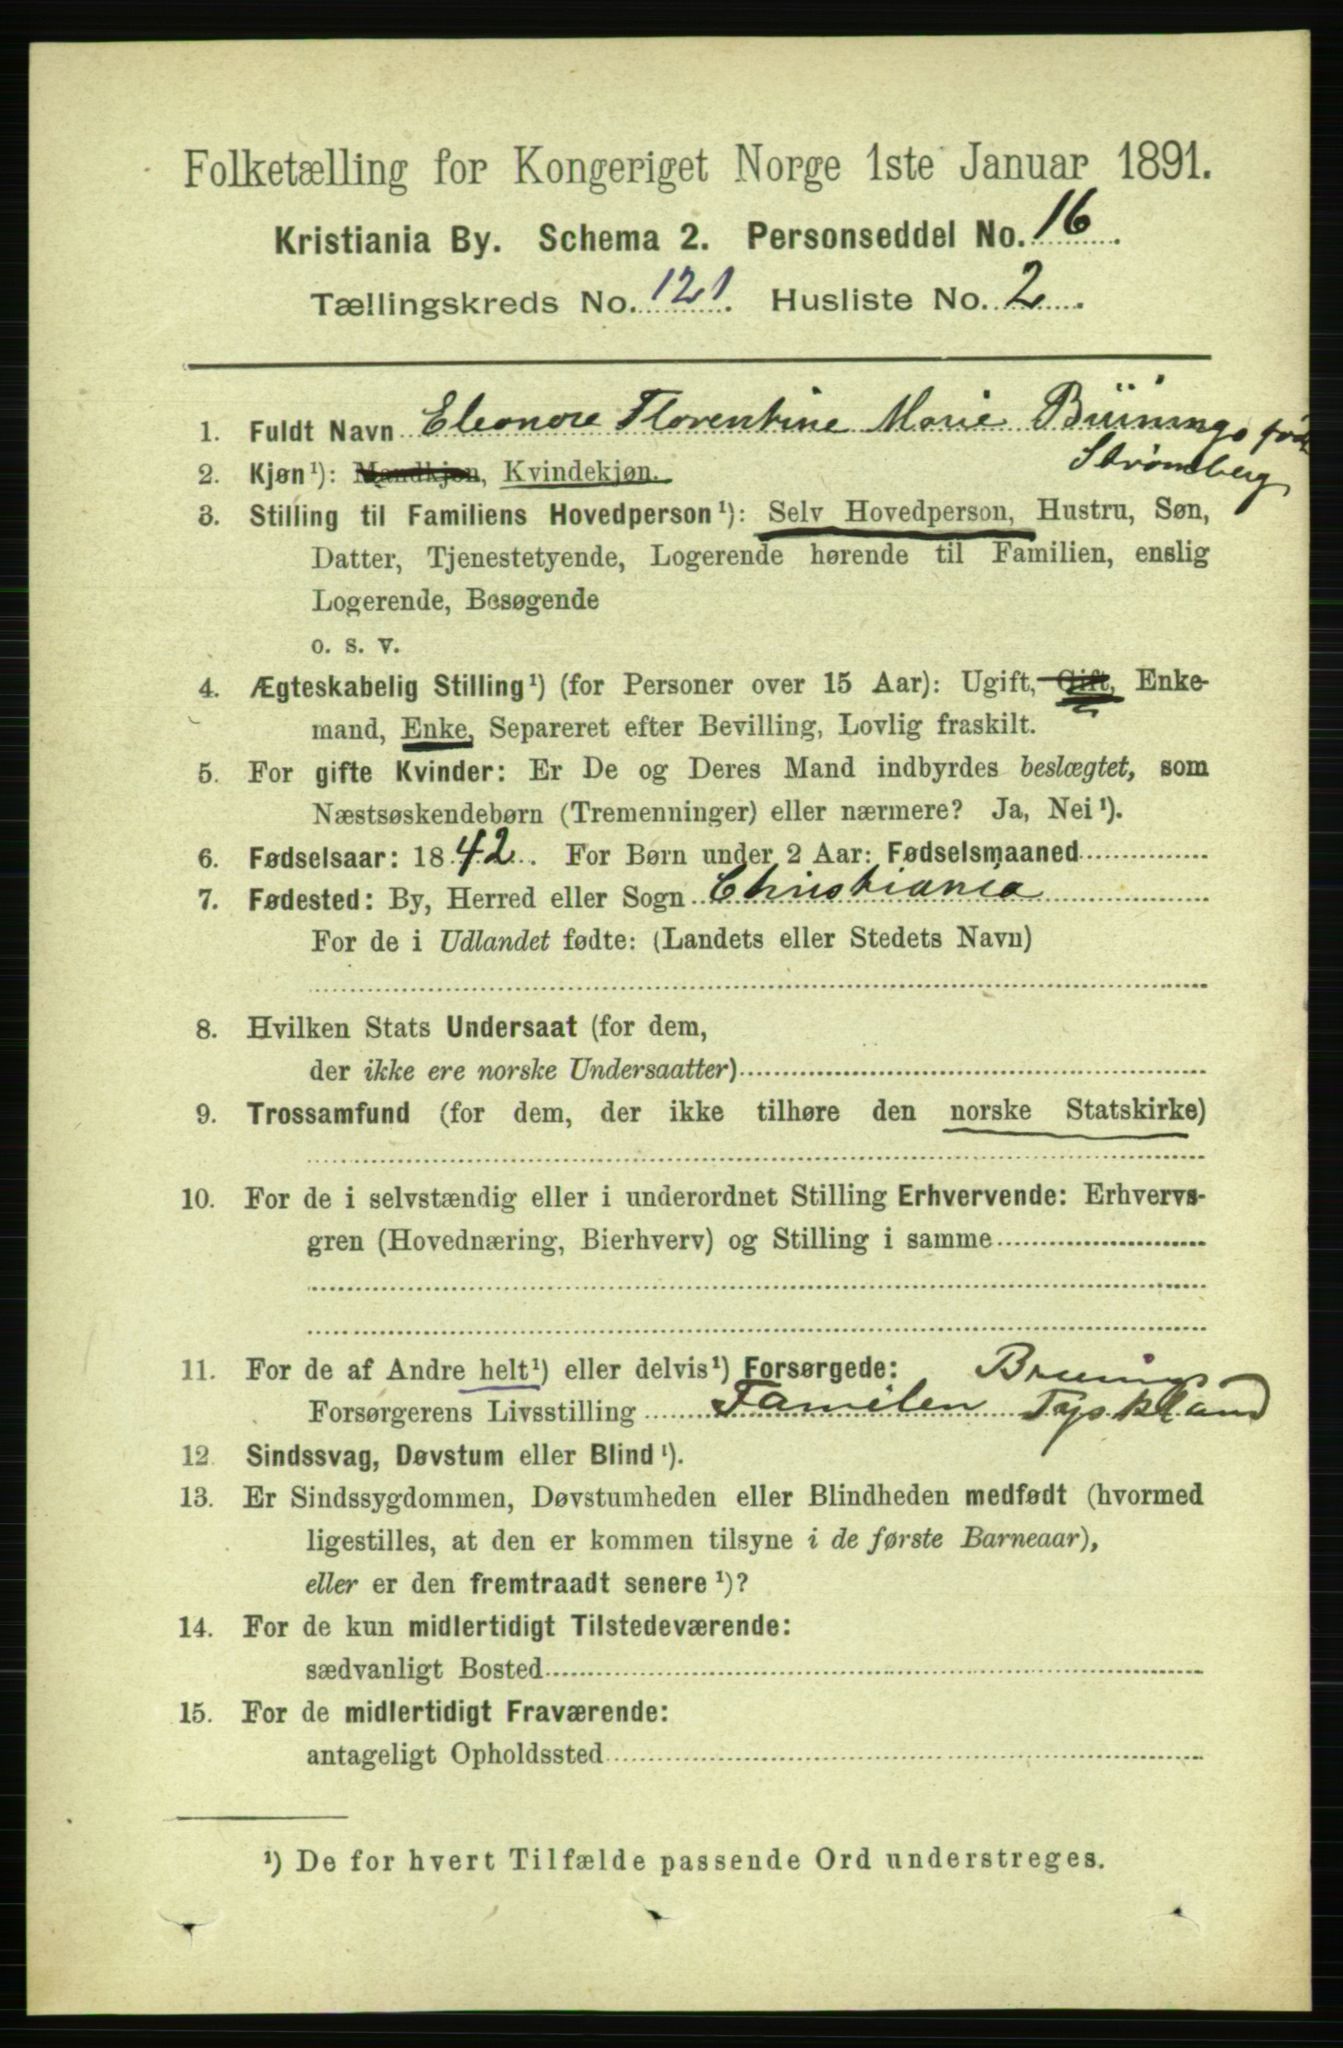 Folketælling for Kongeriget Norge 1ste Januar 1891.
Kristiania By. Schema 2. Personseddel No. 16
Tællingskreds No. 121. Husliste No. 2
1. Fuldt Navn Eleonore Florentine Marie Brünings född
Strømberg
2. Kjøn¹): Mandkjøn, Kvindekjøn.
3. Stilling til Familiens Hovedperson¹): Selv Hovedperson, Hustru, Søn,
Datter, Tjenestetyende, Logerende hørende til Familien, enslig
Logerende, Besøgende
o. s. v.
4. Ægteskabelig Stilling¹) (for Personer over 15 Aar): Ugift, Gift, Enke-
mand, Enke, Separeret efter Bevilling, Lovlig fraskilt.
5. For gifte Kvinder: Er De og Deres Mand indbyrdes beslægtet, som
Næstsøskendebørn (Tremenninger) eller nærmere? Ja, Nei¹).
6. Fødselsaar: 1842. For Børn under 2 Aar: Fødselsmaaned
7. Fødested: By, Herred eller Sogn Christiania
For de i Udlandet fødte: (Landets eller Stedets Navn)
8. Hvilken Stats Undersaat (for dem,
der ikke ere norske Undersaatter)
9. Trossamfund (for dem, der ikke tilhøre den norske Statskirke)
10. For de i selvstændig eller i underordnet Stilling Erhvervende: Erhvervs-
gren (Hovednæring, Bierhverv) og Stilling i samme
11. For de af Andre helt¹) eller delvis¹) Forsørgede: Bruings
Forsørgerens Livsstilling Familen Tyskland
12. Sindssvag, Døvstum eller Blind¹).
13. Er Sindssygdommen, Døvstumheden eller Blindheden medfødt (hvormed
ligestilles, at den er kommen tilsyne i de første Barneaar),
eller er den fremtraadt senere¹)?
14. For de kun midlertidigt Tilstedeværende:
sædvanligt Bosted
15. For de midlertidigt Fraværende:
antageligt Opholdssted
¹) De for hvert Tilfælde passende Ord understreges.